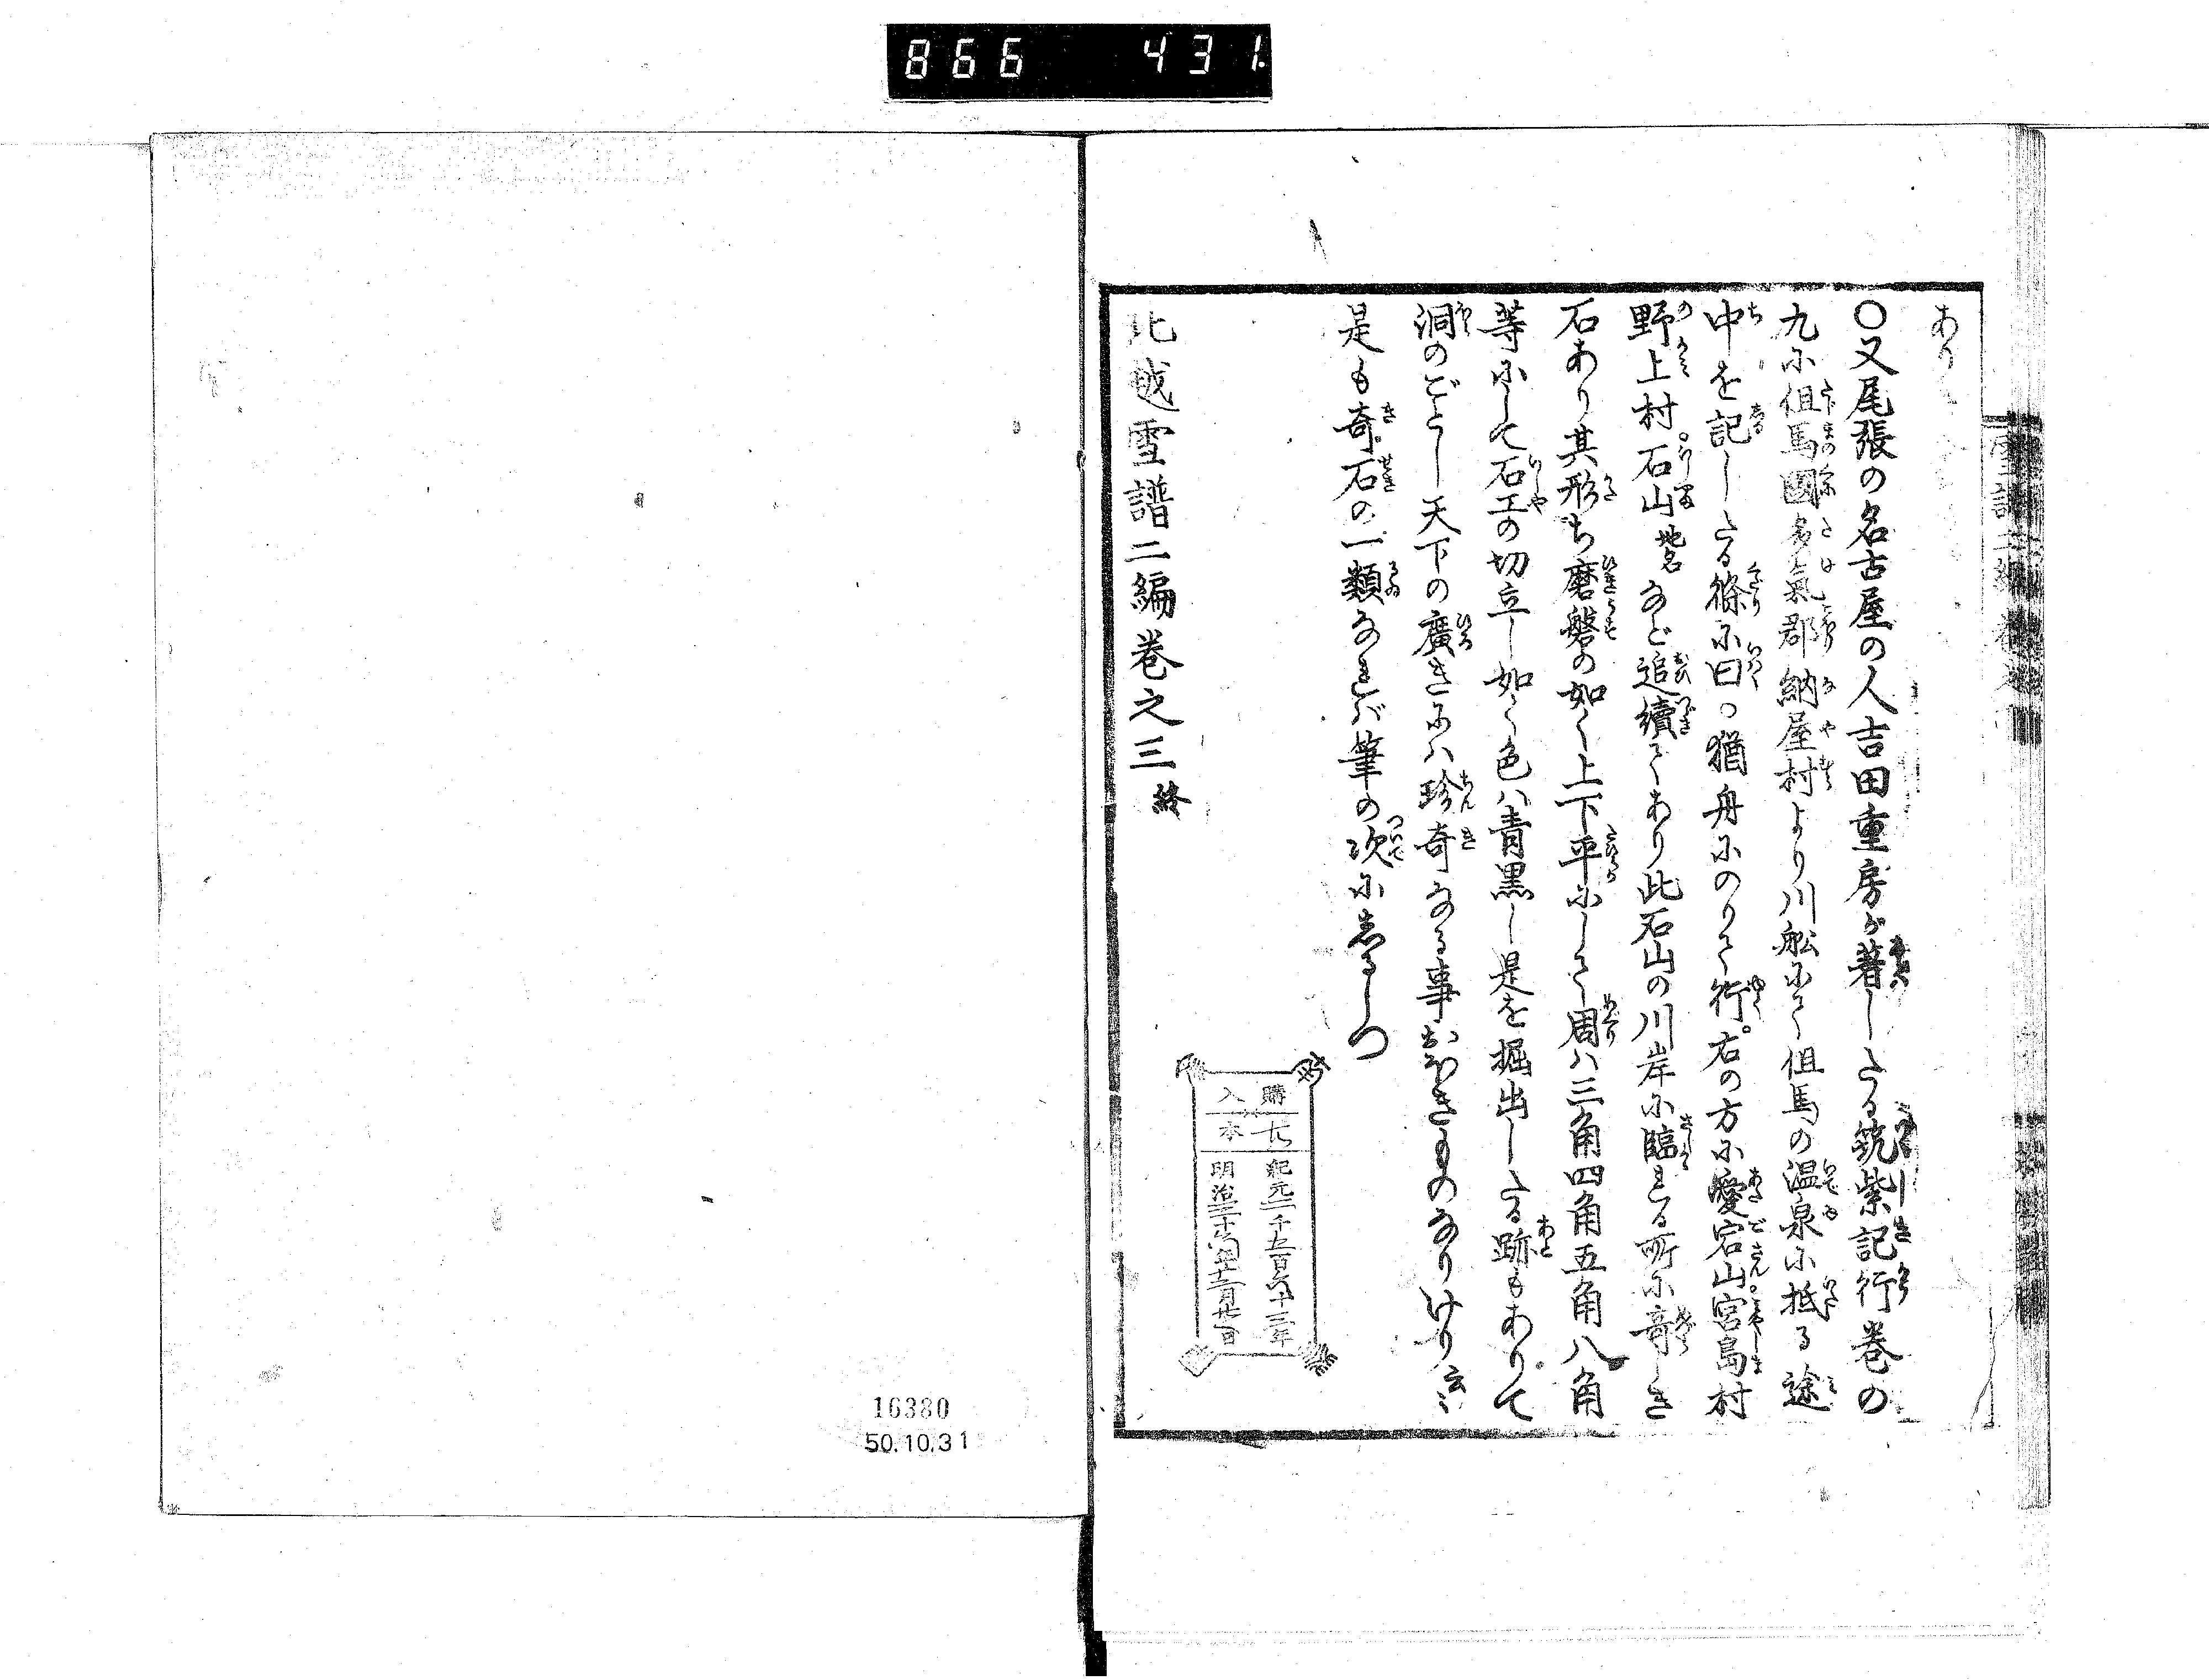 866 431
あり
○又尾張の名古屋の人吉田重房が著したる筑紫記行巻の
九に但馬國多氣郡納屋村より川舩にて但馬の温泉に抵る途
中を記したる條に曰○猶舟にのりて行。右の方に愛宕山宮島村
野上村石山地名など追續てあり此石山の川岸に臨たる所に竒しき
石あり其形ち磨磐の如く上下平にして周ハ三角四角五角八角
等にして石工の切立し如く色ハ青黒し是を掘出したる跡もありて
洞のごとし天下の廣きにハ珍奇なる事おほきものなりけり云々
是も奇石の一類なれバ筆の次にしるしつ
北越雪譜二編巻之三終
購入本
紀元二千五百六十三年
明治三十六年十二月廿一日
16380
50.10.31